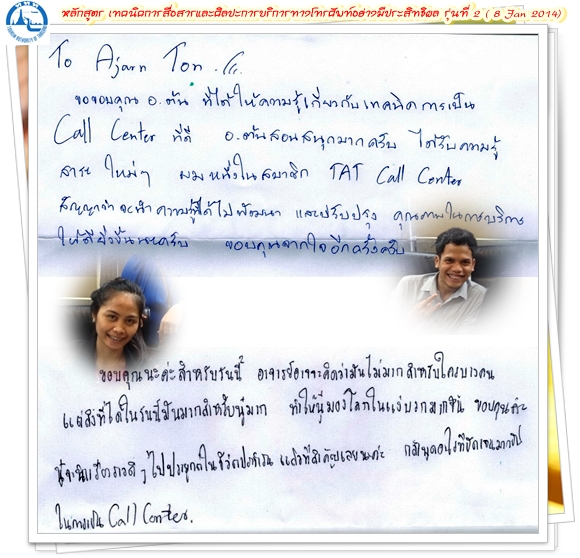 หลักสูตร เทคนิคการสื่อสารและศิลปะการบริการทางโทรศัพท์อย่างมีประสิทธิผล รุ่นที่ 2 ( 8 Jan 2014)
To Ajarn Ton.
ขอขอบคุณ อ.ต้น ที่ได้ให้ความรู้เกี่ยวกับเทคนิค การเป็น
Call Center ที่ดี อ.ต้นสอนสนุกมากครับ ได้รับความรู้
สาระ ใหม่ๆ ผมหนึ่งในสมาชิก TAT Call Center
สัญญาว่าจะนำความรู้ที่ได้ไปพัฒนา และปรับปรุง คุณภาพในการบริการ
ให้ดียิ่งขึ้นนะครับ ขอบคุณจากใจอีกครั้งครับ
ขอบคุณนะค่ะสำหรับวันนี้ อาจารย์อาจจะคิดว่ามันไม่มากสำหรับใครบางคน
แต่สิ่งที่ได้ในวันนี้มันมากสำหรับหนูมาก ทำให้หนูมองโลกในแง่บวกมากขึ้น ขอบคุณค่ะ
ที่จะนำเรื่องราวดีๆไปประยุกต์ในชีวิตประจำวัน แล้วที่สำคัญเลยนะค่ะ
ในการเป็น Call Center.